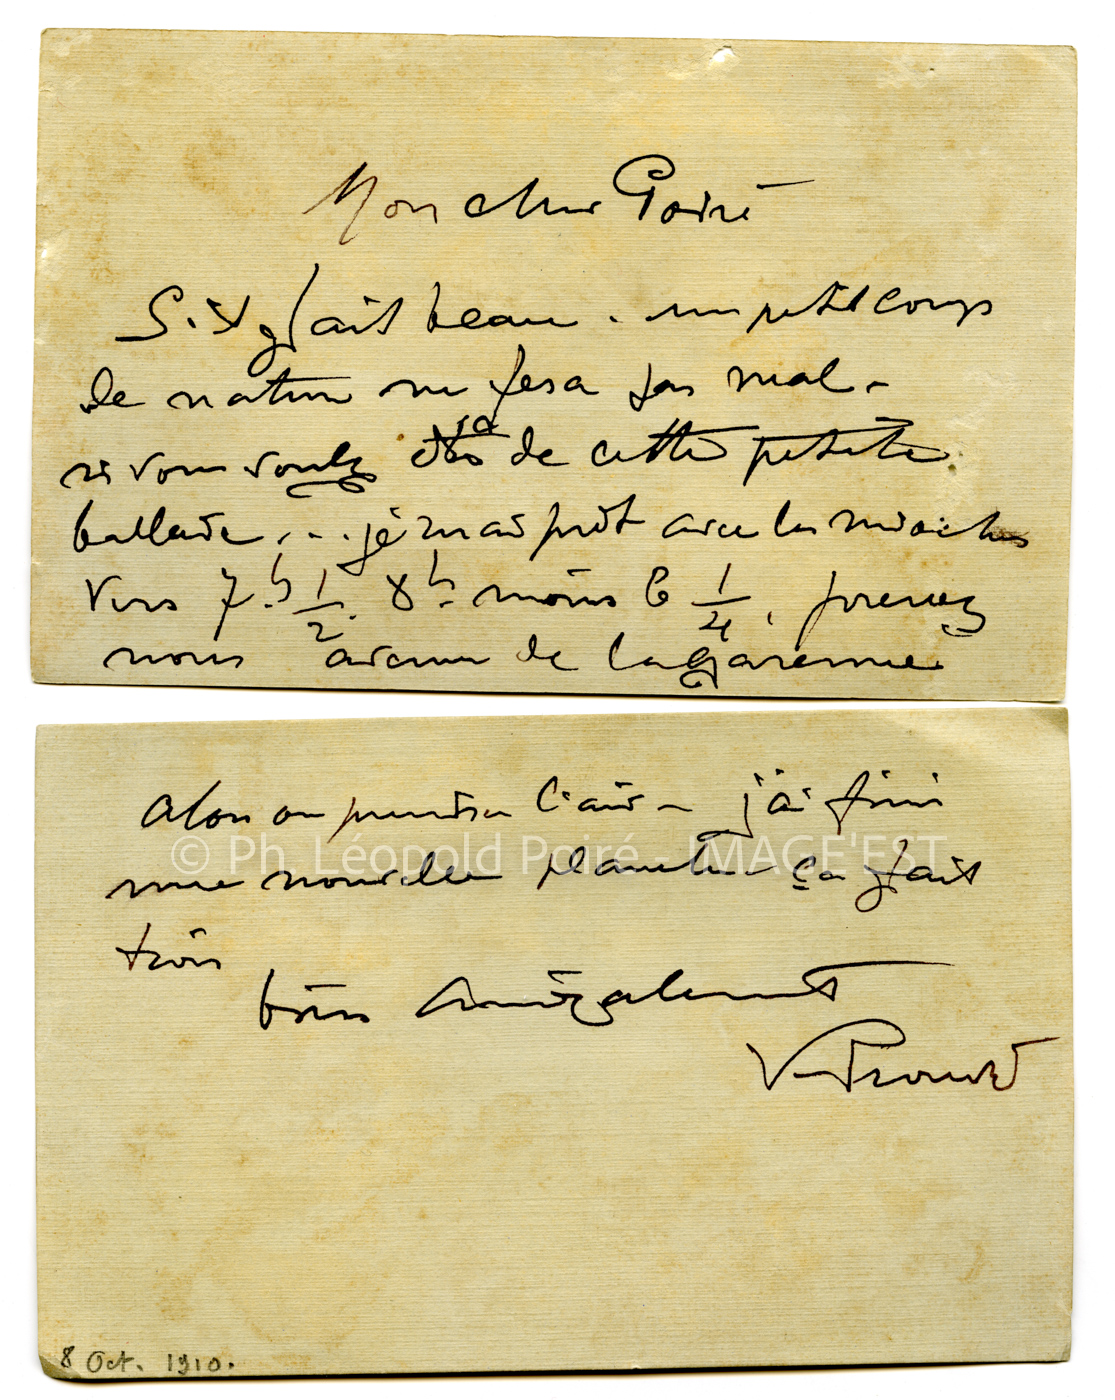 Mon cher Poiré
S'il fait beau. un petit coup
de nature ne fera pas mal -
si vous voulez de cette petite
ballade, ... je serai prêt avec les mioches
vers 7h 1/2. 8h moins le 1/4. prenez
nous avenue de la garenne
Alors on prendra l'air - j'ai fini
une nouvelle planche ça fait
trois
bien amicalement
V. Prouvé
8 Oct. 1910.
© Ph. Léopold Poiré - IMAGE'EST